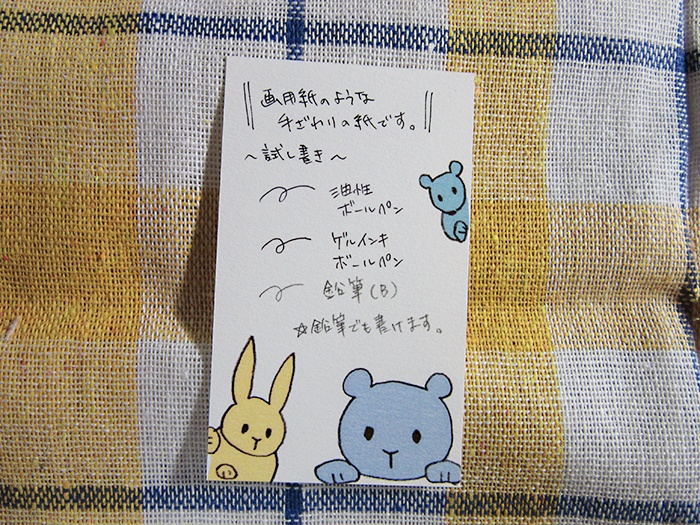 画用紙のような
手ざわりの紙です。
〜試し書き〜
油性
ボールペン
ゲルインキ
ボールペン
鉛筆(B)
☆鉛筆でも書けます。